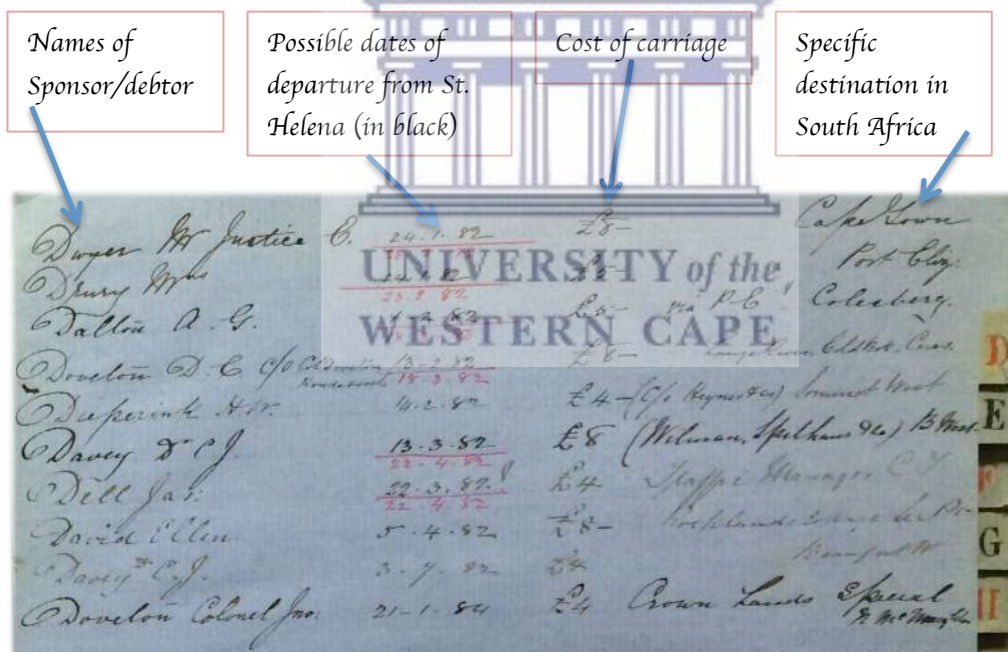 Names of Sponsor/debtor
Possible dates of departure from St. Helena (in black)
Cost of carriage
Specific destination in South Africa
UNIVERSITY of the
WESTERN CAPE
Dwyer Mr Justice C. 24.1.82 £8- Cape Town
Drury Mrs 82 £5- Port Eliz:
23.2.82
Dalton A. G. 82 £5- via P.E. Colesberg.
Doveton D. C c/o 13-2.82 £8-
18.3.82
Dieperink 14.2.82 £4- (c/o Heynes &co) Somerset West
Davey Dr C J. 13.3.82 £8 (Wilman, Spilhaus &co) B West
22-4.82
Dell Jas: 22.3.82. £4 Manager C T
22 4.82
David Ellen 5.4.82 £8-
Davey Dr C.J. 3-7.82 £4
Doveton Colonel Jno: 21-1.84 £4 Crown Lands Special
D
E
F
G
H